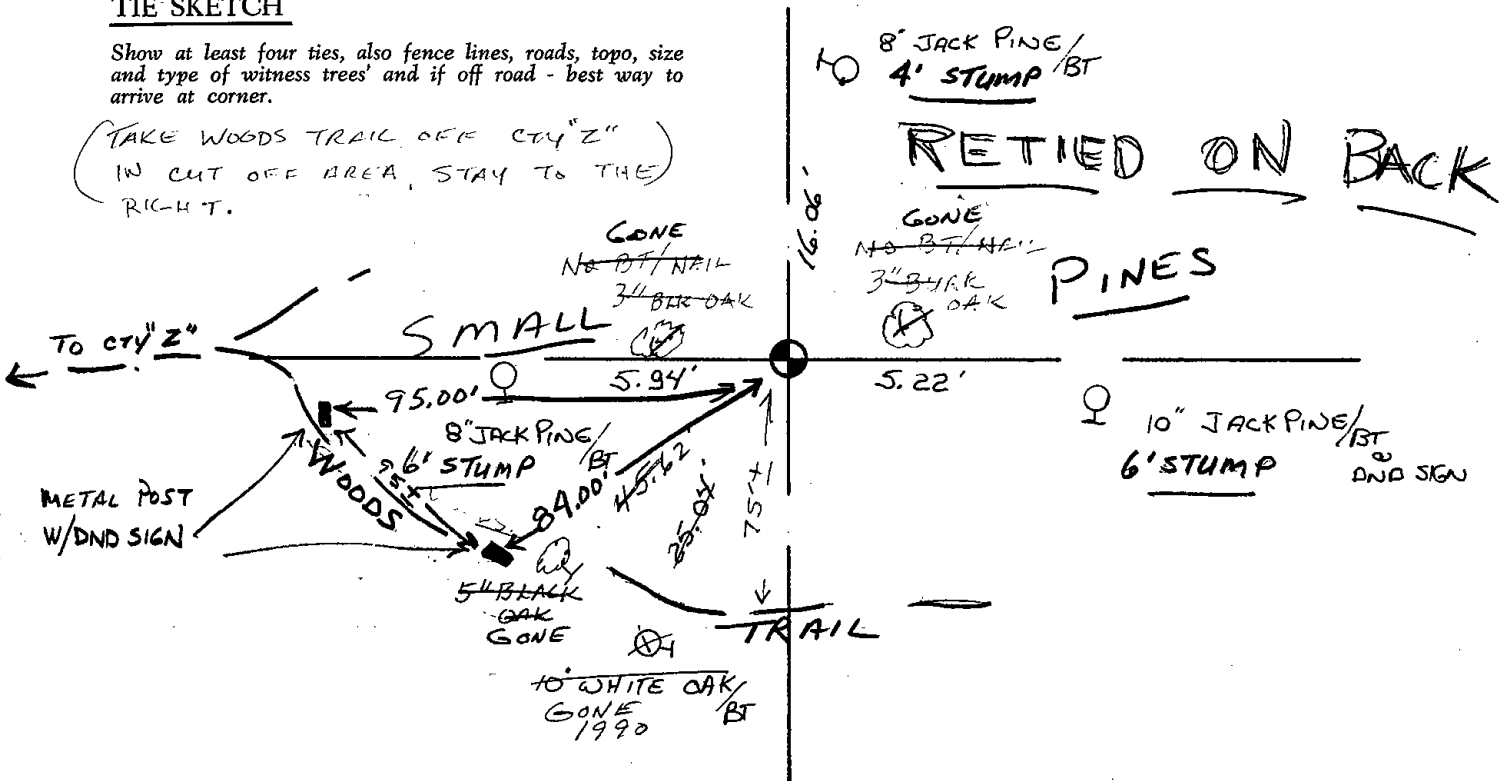 TIE SKETCH
Show at least four ties, also fence lines, roads, topo, size
and type of witness trees' and if off road - best way to
arrive at corner.
(TAKE WOODS TRAIL OFF CTY "Z"
IN CUT OFF AREA, STAY TO THE)
RIGHT.
8" JACK PINE/BT
4' STUMP
RETIED ON BACK
16.06'
GONE
NO BT/NAIL
3" BLK OAK
GONE
NO BT/NAIL
OAK
PINES
SMALL
TO CTY "Z"
5.94'
5.22'
95.00'
8" JACK PINE/BT
6' STUMP
75±
WOODS
84.00'
45.62'
75±
10" JACK PINE/BT
DND SIGN
6' STUMP
METAL POST
W/DND SIGN
5" BLACK
OAK
GONE
TRAIL
10" WHITE OAK/BT
GONE
1990